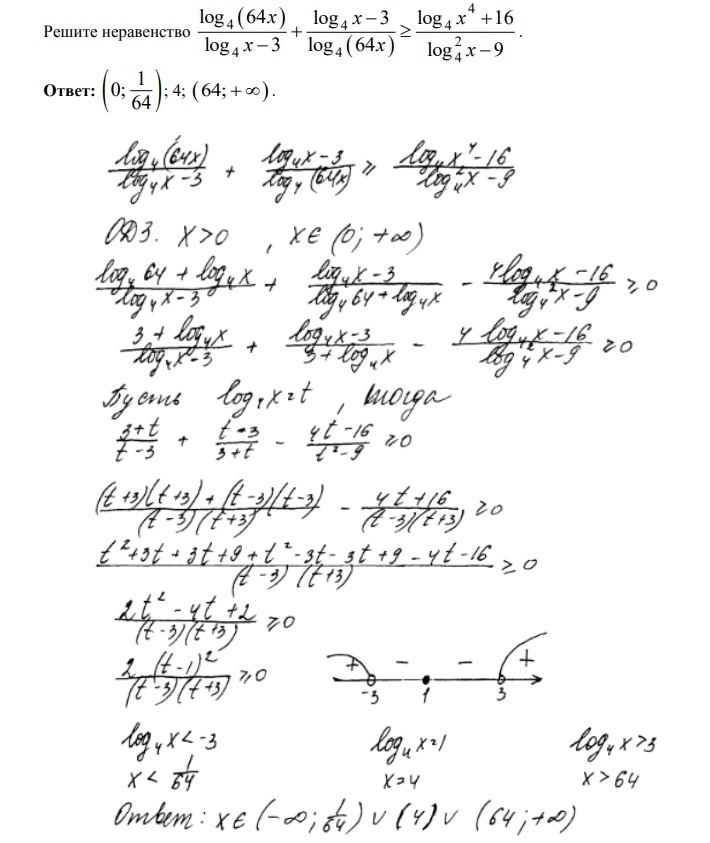 Решите неравенство log₄(64x)/(log₄x−3) + (log₄x−3)/log₄(64x) ≥ (log₄x⁴+16)/(log₄²x−9).
Ответ: (0; 1/64); 4; (64; +∞).
log₄(64x)/(log₄x−3) + (log₄x−3)/(log₄(64x)) ≥ (log₄x⁴−16)/(log₄²x−9)
ОДЗ. x>0 , x∈(0; +∞)
(log₄64+log₄x)/(log₄x−3) + (log₄x−3)/(log₄64+log₄x) − (4log₄x−16)/(log₄²x−9) ≥0
(3+log₄x)/(log₄x−3) + (log₄x−3)/(3+log₄x) − (4log₄x−16)/(log₄²x−9) ≥0
Пусть log₄x=t, тогда
(3+t)/(t−3) + (t−3)/(3+t) − (4t−16)/(t²−9) ≥0
((t+3)(t+3)+(t−3)(t−3))/((t−3)(t+3)) − (4t+16)/((t−3)(t+3)) ≥0
(t²+3t+3t+9+t²−3t−3t+9−4t−16)/((t−3)(t+3)) ≥0
(2t²−4t+2)/((t−3)(t+3)) ≥0
2(t−1)²/((t−3)(t+3)) ≥0
+ − − +
−3 1 3
log₄x<−3 log₄x=1 log₄x>3
x<1/64 x=4 x>64
Ответ: x∈(−∞; 1/64)∪(4)∪(64;+∞)